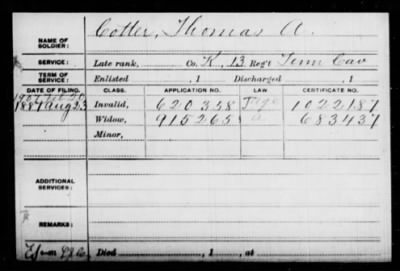 NAME OF SOLDIER: Cotter, Thomas A.
SERVICE: Late rank, Co. K, 13 Reg't Tenn Cav
TERM OF SERVICE: Enlisted , 1 Discharged , 1
DATE OF FILING. CLASS. APPLICATION NO. LAW CERTIFICATE NO.
1887 Aug 23 Invalid, 620358 1022187
Widow, 915265 683437
Minor,
ADDITIONAL SERVICES:
REMARKS:
Died , 1 , at